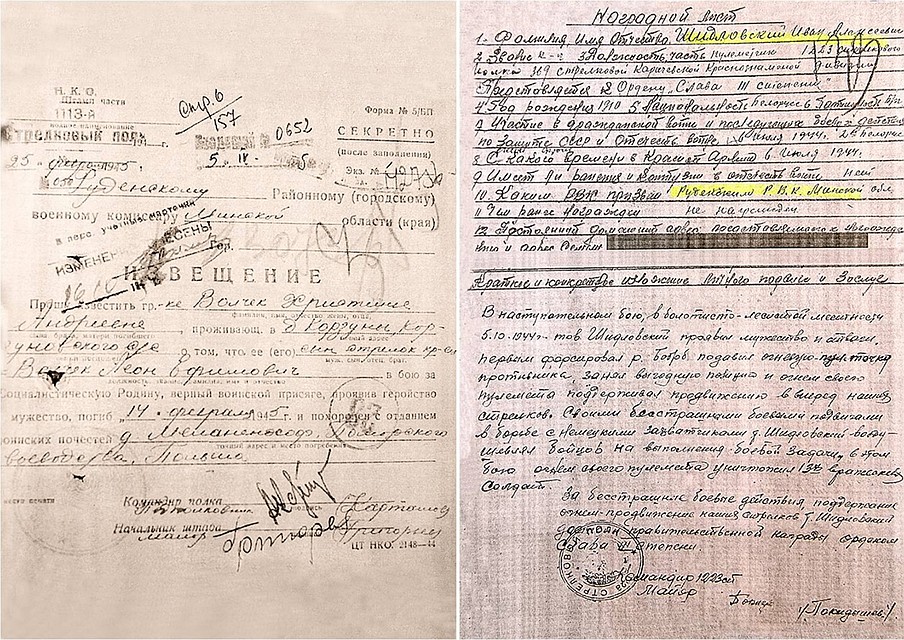 Н. К. О.
Штамп части
1113-й
Стрелковый полк
25 февраля 1945 г.
Стр. 6
157
Входящий № 0652
5. IV. 45
Форма № 5/БП
СЕКРЕТНО
(после заполнения)
Экз. №
Руденскому Районному (городскому)
военному комиссару Минской
области (края)
В перс. учетные карточки
ИЗМЕНЕНИЯ ВНЕСЕНЫ
Гор.
ИЗВЕЩЕНИЕ
Прошу известить гр-ке Волчек Христине
Андреевне, проживающ. в д. Кордуны,
о том, что ее (его) сын стрелок кр-ец
Волчек Леон Ефимович в бою за
Социалистическую Родину, верный воинской присяге, проявив геройство
и мужество, погиб 14 февраля 1945 г. и похоронен с отданием
воинских почестей д.
воеводства, Польша
Командир полка
Начальник штаба
майор Григорьев
ЦТ НКО. 2148—44
Наградной лист
1. Фамилия Имя Отчество Шидловский Иван Алексеевич
2 Звание к-ц 3 Должность, часть Пулеметчик 1223 стрелкового
полка 369 стрелковой Карачевской Краснознаменной дивизии
Представляется к Ордену "Слава III степени"
4 Год рождения 1910 5 Национальность белорус 6 Партийность б/п
7 Участие в гражданской войне и последующих боевых действиях
по защите СССР и Отечеств. войне с июля 1944.
8 С какого времени в Красной Армии с Июля 1944г.
9 Имеет ли ранения и контузии в отечеств. войне не имеет
10 Каким РВК призван Руденским Р.В.К. Минской обл.
11 Чем ранее награжден не награждён
12 Постоянный домашний адрес
и адрес семьи
Краткое и конкретное изложение личного подвига и Заслуг
В наступательном бою, в болотисто-лесистой местности
5.10.1944г. тов Шидловский проявил мужество и отвагу.
первым форсировал р. Бобрь подавил огневую точку
противника, занял выгодную позицию и огнем своего
пулемета поддерживал продвижение вперед наших
стрелков. Своими бесстрашными боевыми подвигами
в борьбе с немецкими захватчиками т. Шидловский вооду-
шевлял бойцов на выполнение боевой задачи, в этом
бою огнем своего пулемета уничтожил вражеских
Солдат.
За бесстрашные боевые действия поддержание
огнем продвижение наших стрелков т. Шидловский
достоин правительственной награды орденом
Слава III степени.
Командир 1223 сп
Майор